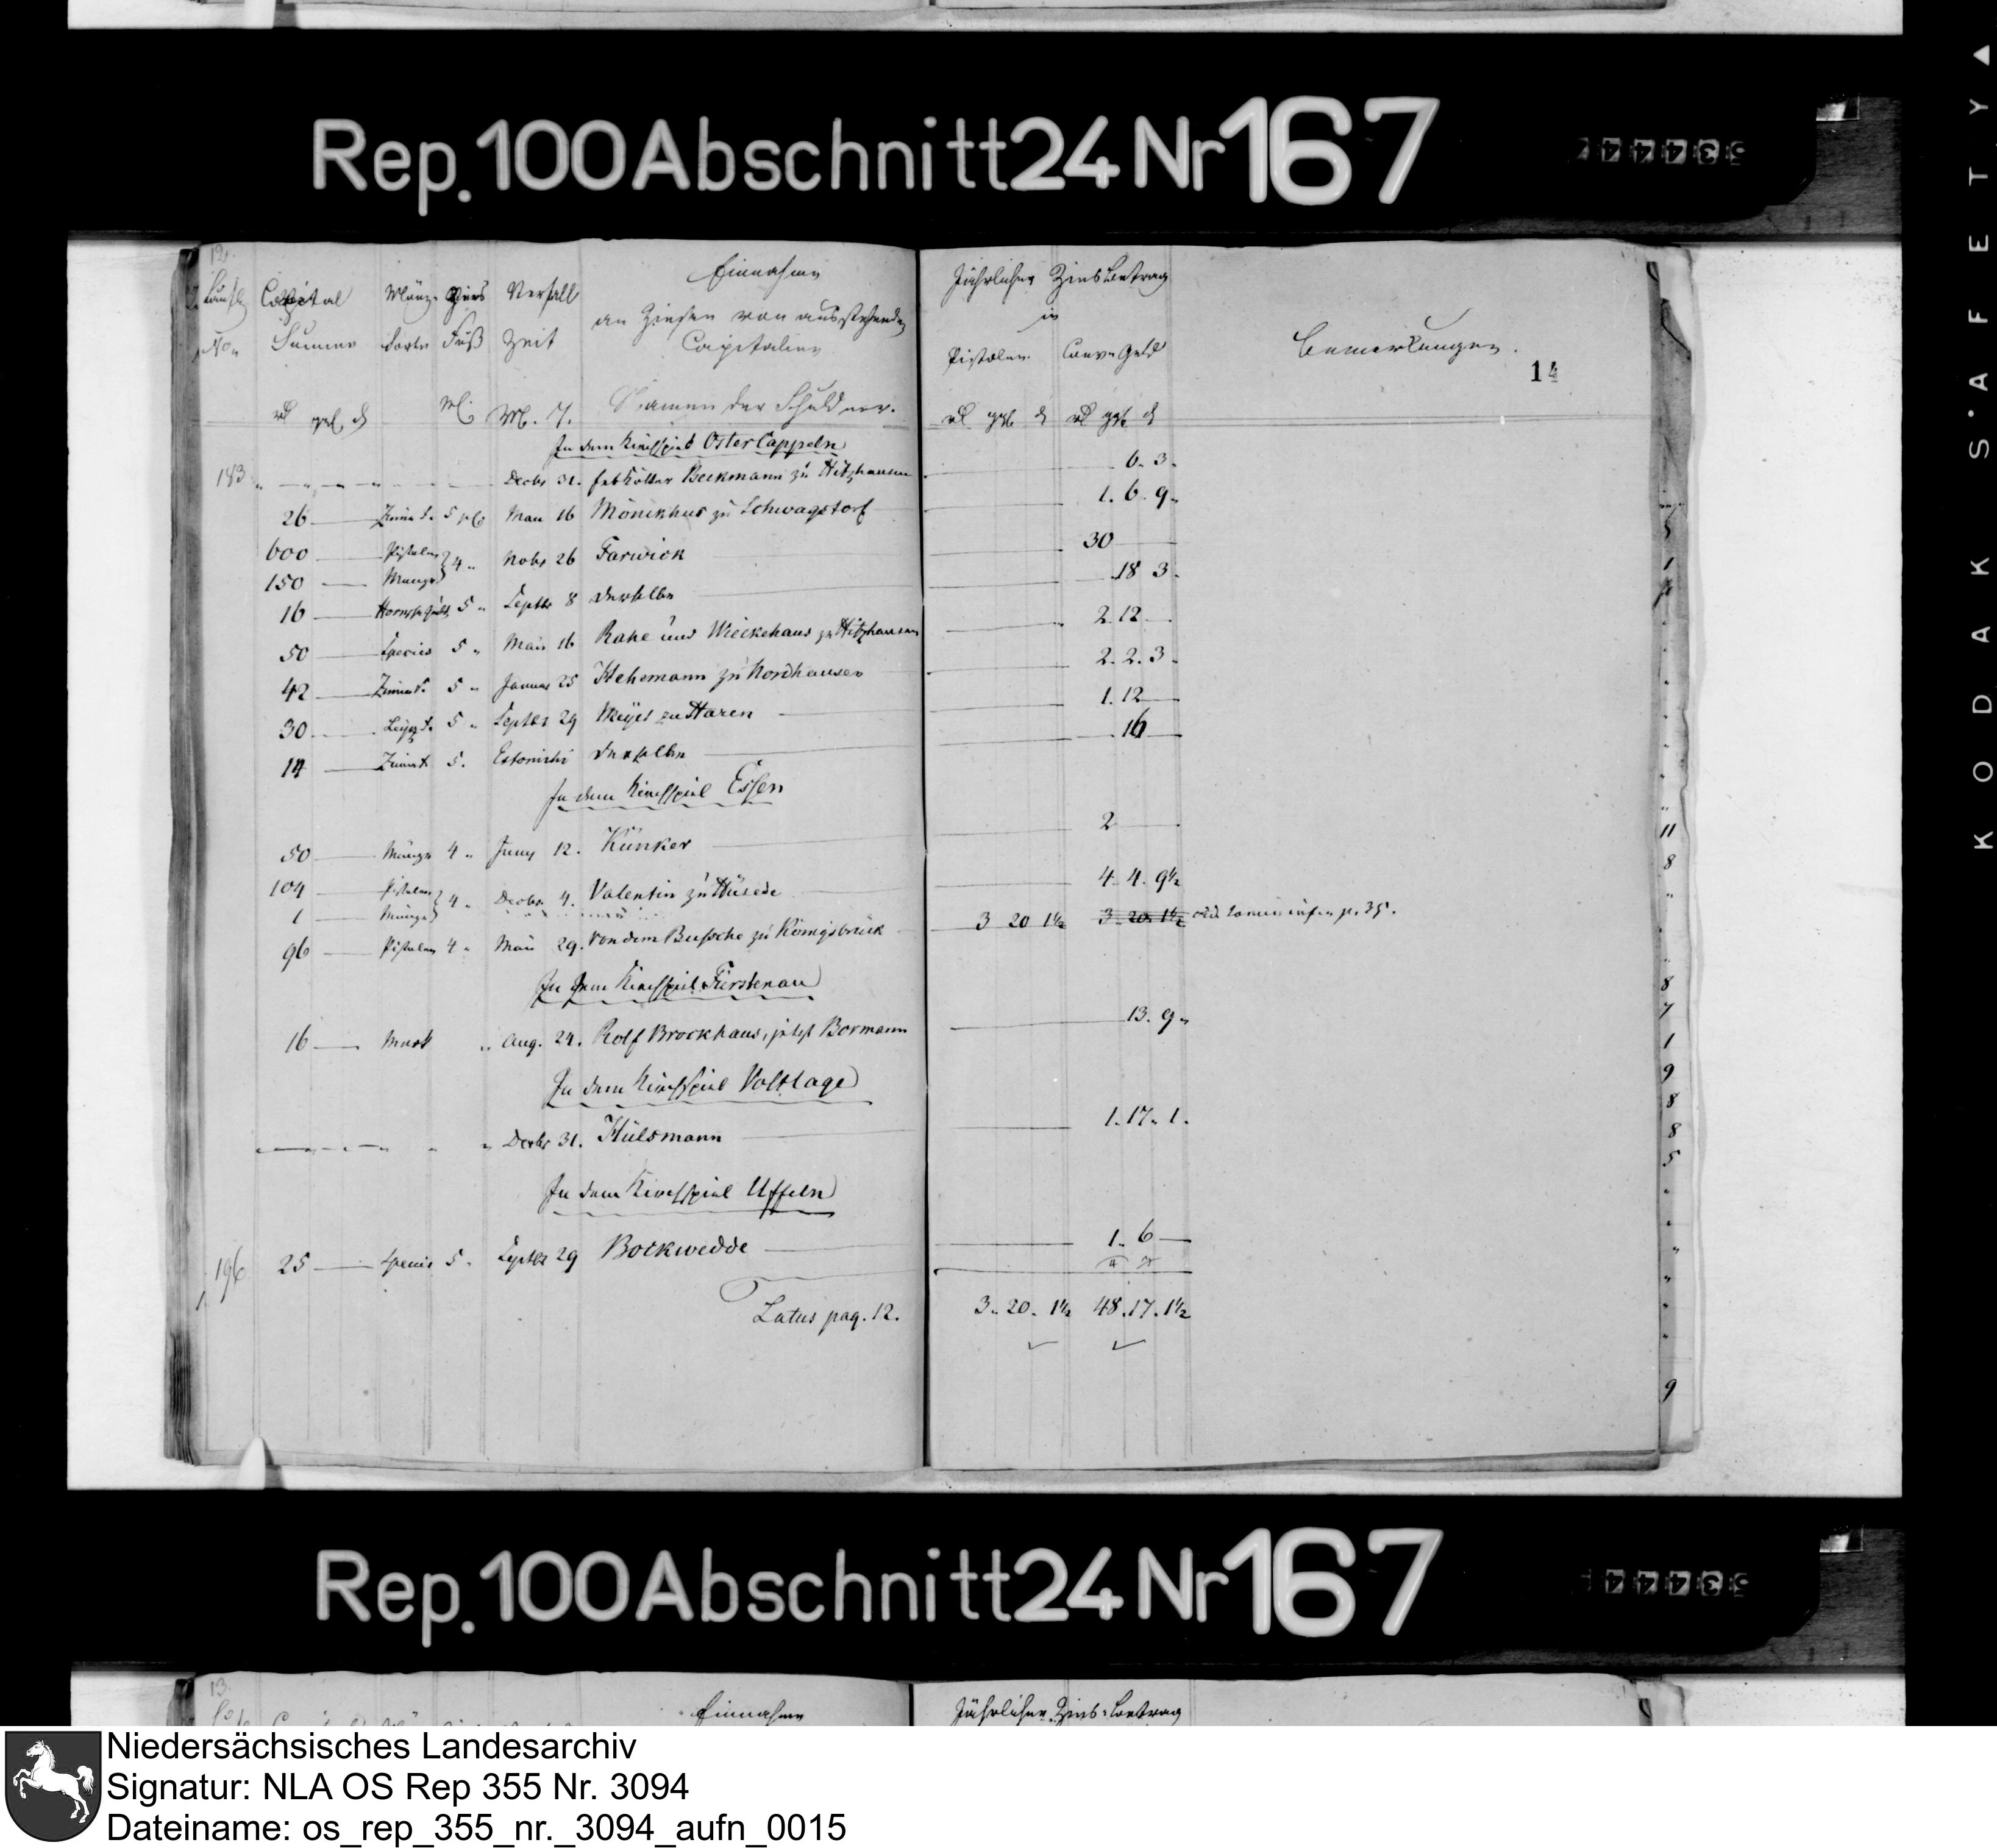 Rep. 100 Abschnitt 24 Nr 167
12.
Capital Münz- Zins Verfall Einnahme Jährlicher Zins Betrag
an Zinsen von ausstehenden in
No. Summe Sorte Fuß Zeit Capitalien Pistolen Conv. Geld Bemerkungen.
14
M. T. Namen der Schuldner.
In dem Kirchspiel OsterCappeln
183 Decbr 31. Erbkötter Beckmann zu Hitzhausen 6. 3.
26 5 Mai 16 Mönkhus zu Schwagstorf 1. 6. 9.
600 Pistolen 4 Nobr 26 Farwick 30
150 Münze
16 5 Septbr 8 derselbe 18 3.
50 Species 5 Mai 16 Rahe und Wieckehaus zu Hitzhausen 2. 12
42 5 Januar 25 Hehemann zu Nordhausen 2. 2. 3.
30 5 Septbr 29 Meyer zu Haren 1. 12
14 5. Estomihi derselbe 16
In dem Kirchspiel Essen
50 Münze 4 Juny 12. Künker 2
104 Pistolen 4 Decbr 4. Valentin zu Hüsede 4. 4. 9½
1 Münze
96 Pistolen 4 Mai 29. von dem Bussche zu Königsbrück 3 20 1½ 3. 20. 1½ p. 35.
In dem Kirchspiel Fürstenau
16 Mark Aug. 24. Rolf Brockhaus, jetzt Bormann 13. 9.
In dem Kirchspiel Voltlage
Decbr 31. Hülsmann 1. 17. 1.
In dem Kirchspiel Uffeln
196 25 Specie 5 Septbr 29 Bockwedde 1. 6
Latus pag. 12. 3. 20. 1½ 48. 17. 1½
Rep. 100 Abschnitt 24 Nr 167
13.
Einnahme Jährlicher Zins-Betrag
KODAK SAFETY
Niedersächsisches Landesarchiv
Signatur: NLA OS Rep 355 Nr. 3094
Dateiname: os_rep_355_nr._3094_aufn_0015